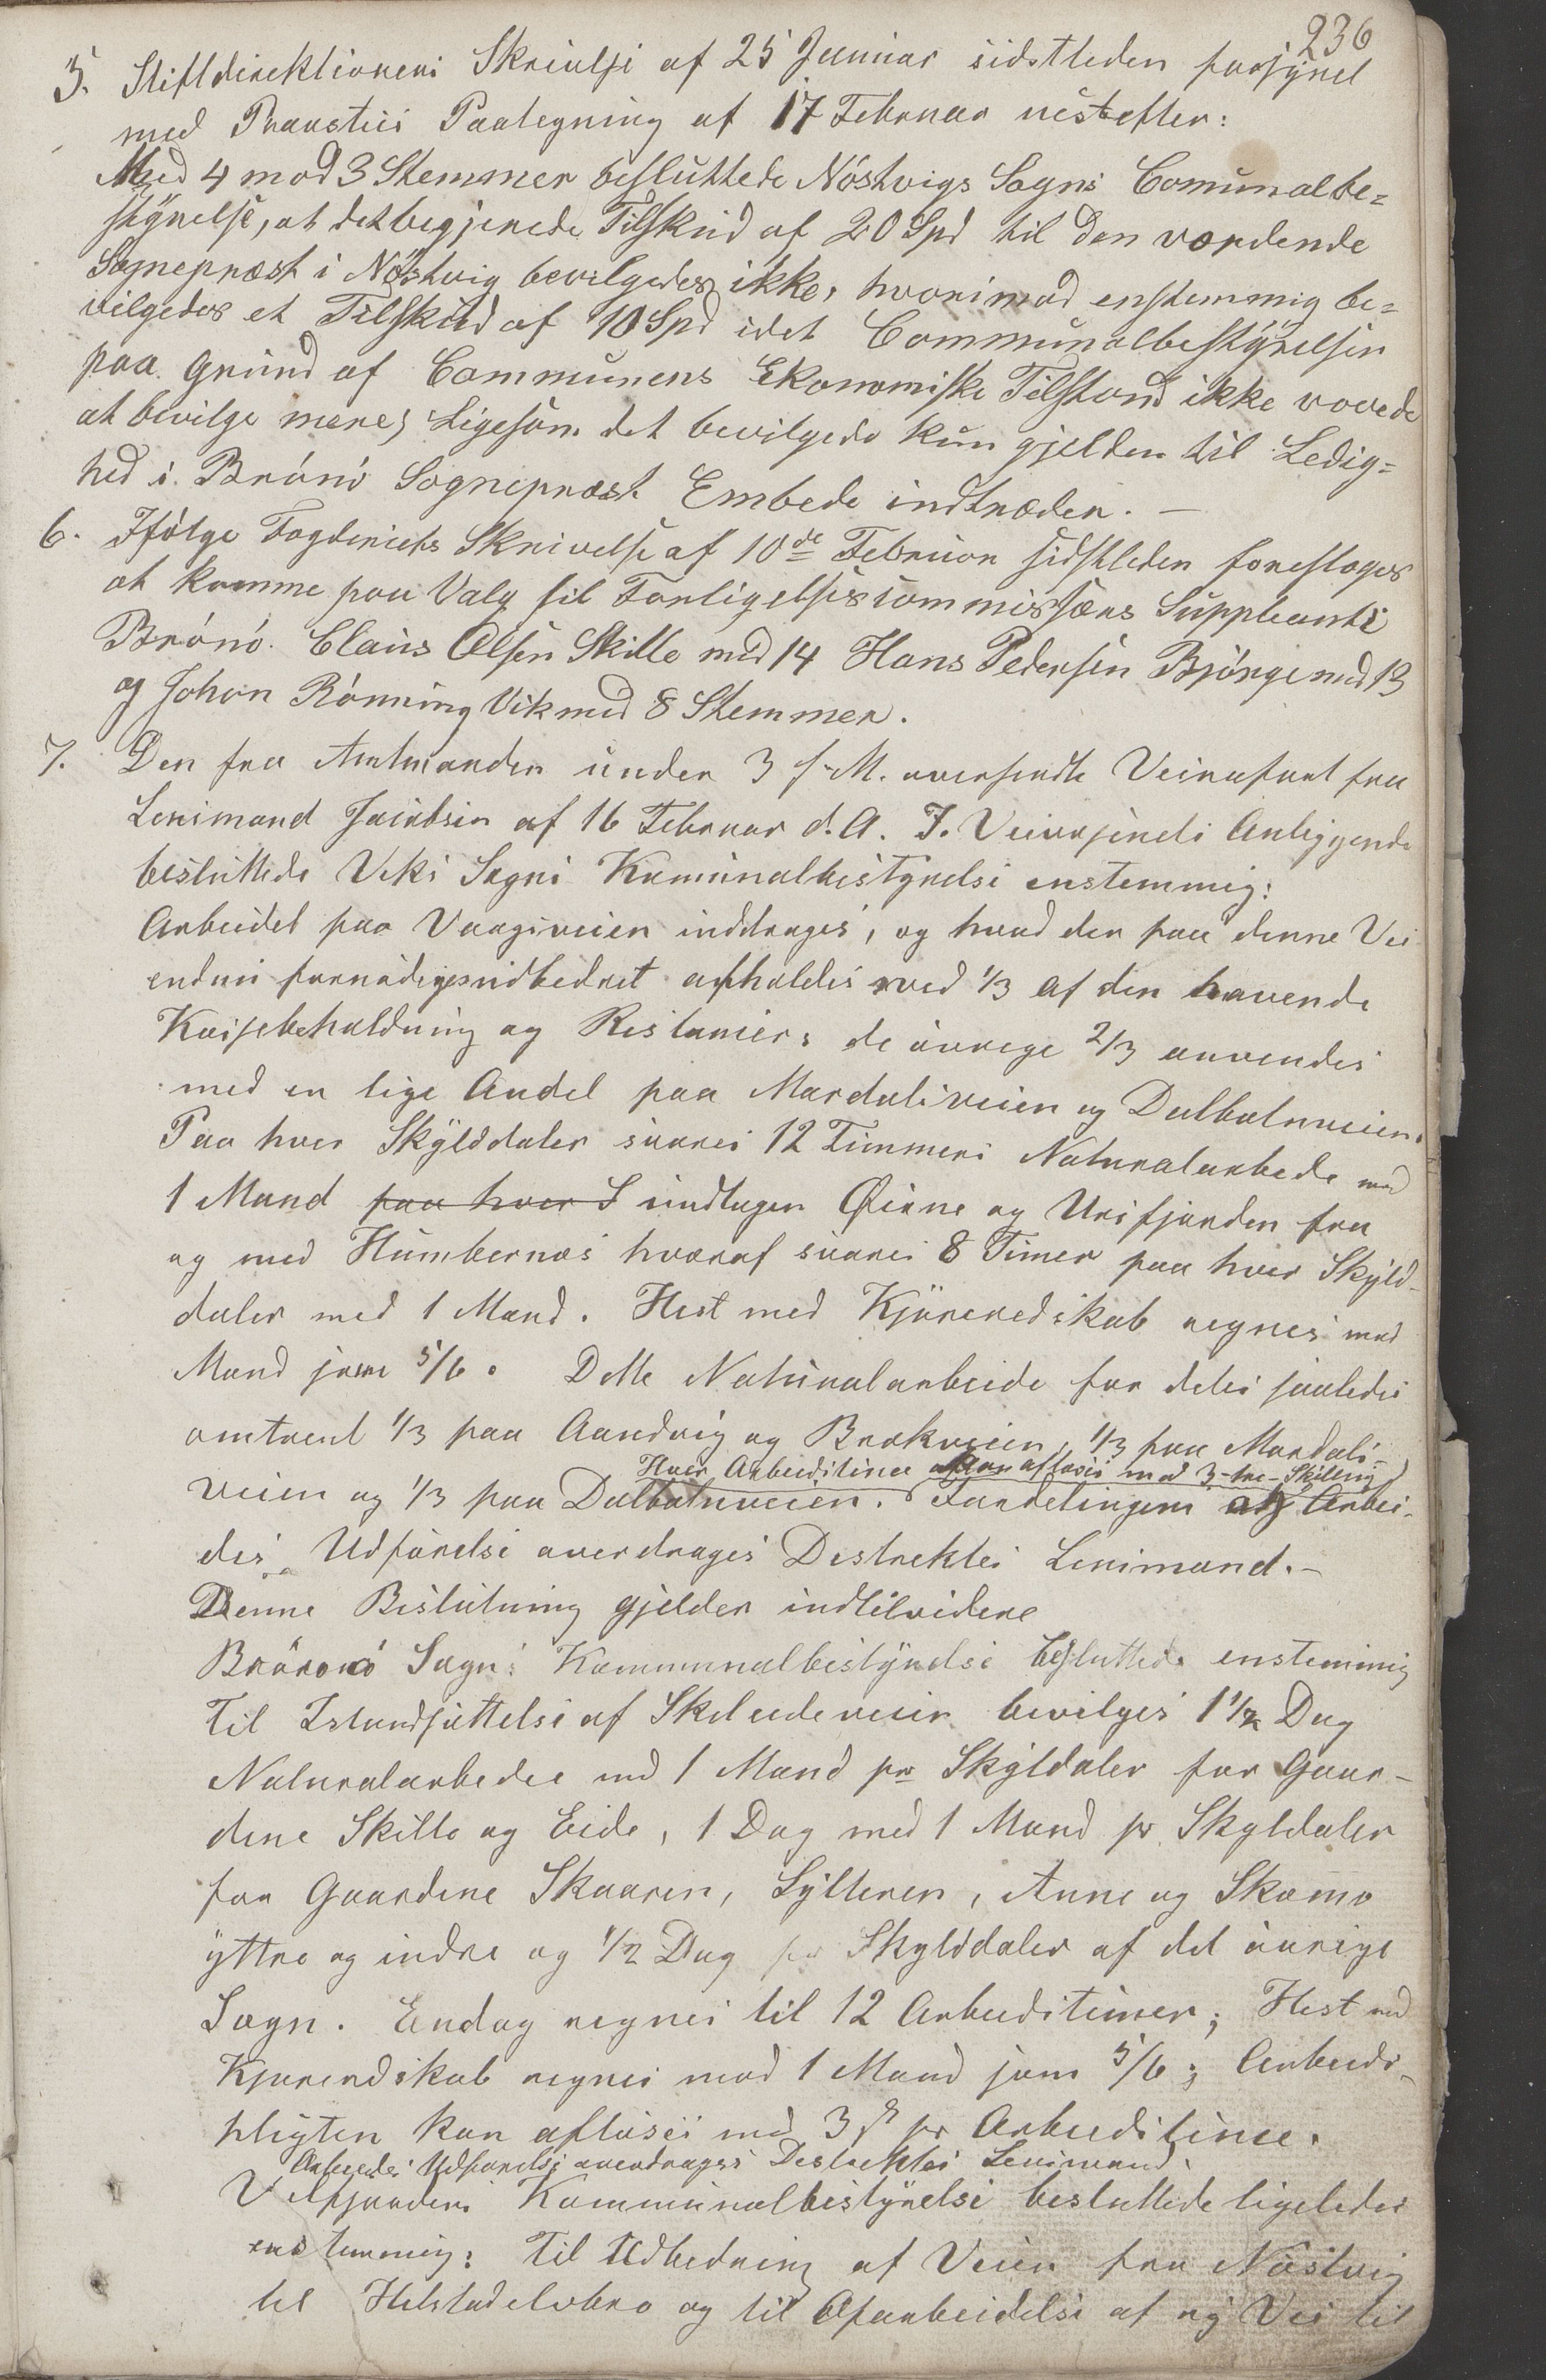 236
5. Stiftdirektionens Skrivelse af 25 Januar sidstleden forsynet
med Proustiets Paategning af 17 Februar næstefter:
Med 4 mod 3 Stemmer besluttede Nöstvigs Sogns Comunalbe=
styrelse, at det begjærede Tilskud af 20 Spd til den vordende
Sognepræst i Nöstvig bevilgedes ikke, hvorimod enstemmig be=
vilgedes et Tilskud af 10 Spd idet Communalbestyrelsen
paa Grund af Communens Ekonomiske Tilstand ikke vovede
at bevilge mere, Ligesom det bevilgede kun gjelder til Ledig=
hed i Brönö Sognepræst Embede indtræder. —
6. Ifölge Fogderiets Skrivelse af 10de Februar sidstleden foreslages
at komme paa Valg til Forligelsescommissærs Suppleant i
Brönö. Claus Olsen Skille med 14 Hans Pedersen Bjørge med 13
og Johan Rönning Vik med 8 Stemmer.
7. Den fra Amtmanden under 3 f. M. oversendte Veirapport fra
Lensmand Jacobsen af 16 Februar d. A. I. Veivæsenets Anliggende
besluttede Viks Sogns Komunalbestyrelse enstemmig:
Arbeidet paa Vaagsveien inddrages, og hvad der paa denne Vei
endnu fornødiges udbedret afholdes med 1/3 af den havende
Kassebeholdning og Restancer; de övrege 2/3 anvendes
med en lige Andel paa Mardalsveien og Dalbotnveien.
Paa hver Skylddaler svares 12 Timmers Naturalarbede med
1 Mand paa hver S undtagen Öerne og Ursfjorden fra
og med Humbernæs hvoraf svares 8 Timer paa hver Skyld-
daler med 1 Mand. Hest med Kjöreredskab regnes mod
Mand som 5/6. Dette Naturalarbeide fordeles saaledes
omtrent 1/3 paa Aandvig og Brækveien, 1/3 paa Mardals-
Hver Arbeidstime afløses med 3 - tre - Skilling
veien og 1/3 paa Dalbotnveien. Fordelingen af Arbei-
dets Udförelse overdrages Destrektes Lensmand. -
Denne Beslutning gjelder indtilvidere
Brönö Sogns Kommunalbestyrelse besluttede enstemmig
Til Istandsættelse af Skeleedeveien bevilges 1 1/2 Dag
Naturalarbede med 1 Mand pr Skyldaler for Gaar-
dene Skille og Eide, 1 Dag med 1 Mand pr Skyldaler
for Gaardene Skaaren, Sylteren, Aune og Skomo
yttre og indre og 1/2 Dag pr Skylddaler af det övrige
Sogn. En dag regnes til 12 Arbeidstimer; Hest med
Kjøreredskab regnes mod 1 Mand som 5/6; Arbeids-
pligten kan aflöses med 3 ß pr Arbeidstime.
Arbeidets Udförelse overdrages Destrektes Lensmand.
Velfjordens Kommunalbestyrelse besluttede ligeledes
enstemmig: Til Udbedring af Veien fra Nöstvig
til Helstadelvbro og til Oparbeidelse af ny Vei til